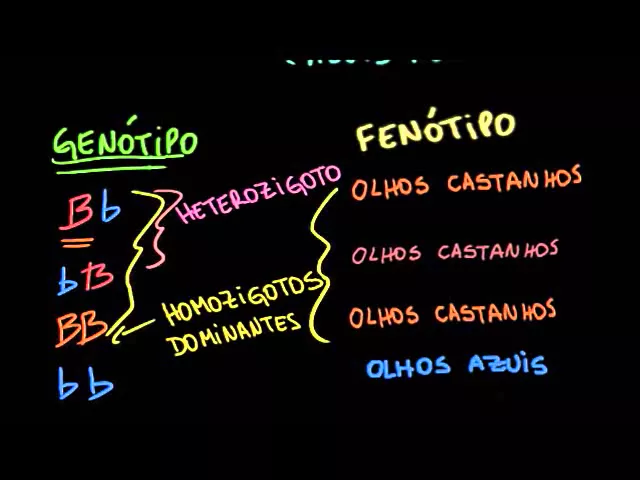 GENÓTIPO FENÓTIPO
Bb HETEROZIGOTO OLHOS CASTANHOS
bB OLHOS CASTANHOS
BB HOMOZIGOTOS DOMINANTES OLHOS CASTANHOS
bb OLHOS AZUIS